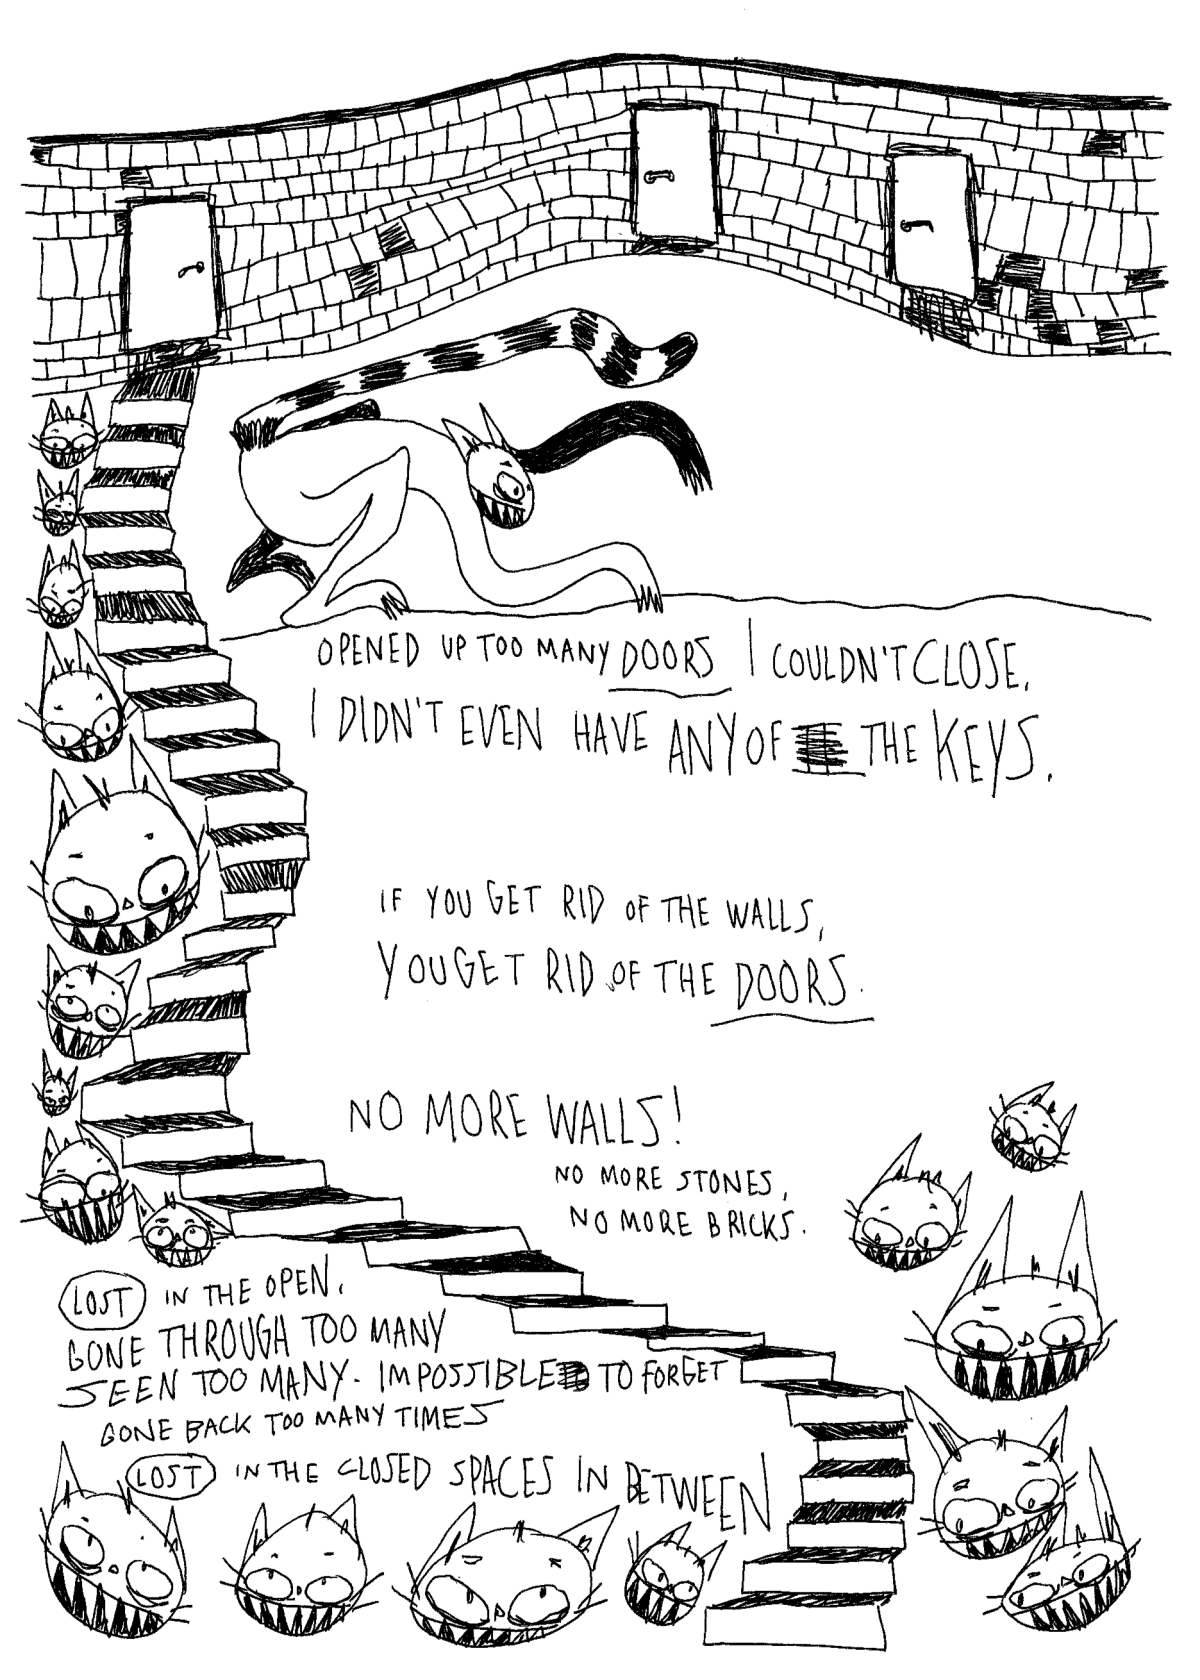 OPENED UP TOO MANY DOORS I COULDN'T CLOSE,
I DIDN'T EVEN HAVE ANY OF THE KEYS.
IF YOU GET RID OF THE WALLS,
YOU GET RID OF THE DOORS.
NO MORE WALLS!
NO MORE STONES,
NO MORE BRICKS.
LOST IN THE OPEN.
GONE THROUGH TOO MANY
SEEN TOO MANY. IMPOSSIBLE TO FORGET
GONE BACK TOO MANY TIMES
LOST IN THE CLOSED SPACES IN BETWEEN